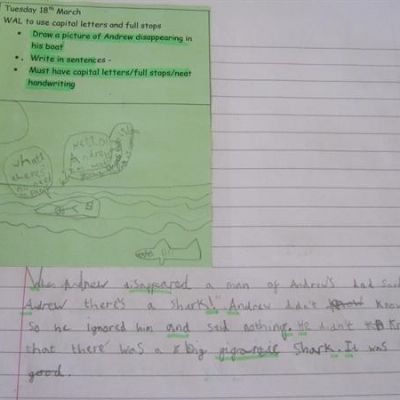 Tuesday 18th March
WAL to use capital letters and full stops
Draw a picture of Andrew disappearing in
his boat
Write in sentences -
Must have capital letters/full stops/neat
handwriting
what
there's
Hello
Andrew
When Andrew disappeared a man of Andrew's dad said
Adrew there's a shark!" Andrew didn't know know
So he ignored him and said nothing. He didn't
that there was a big gigantic shark. It was
good.